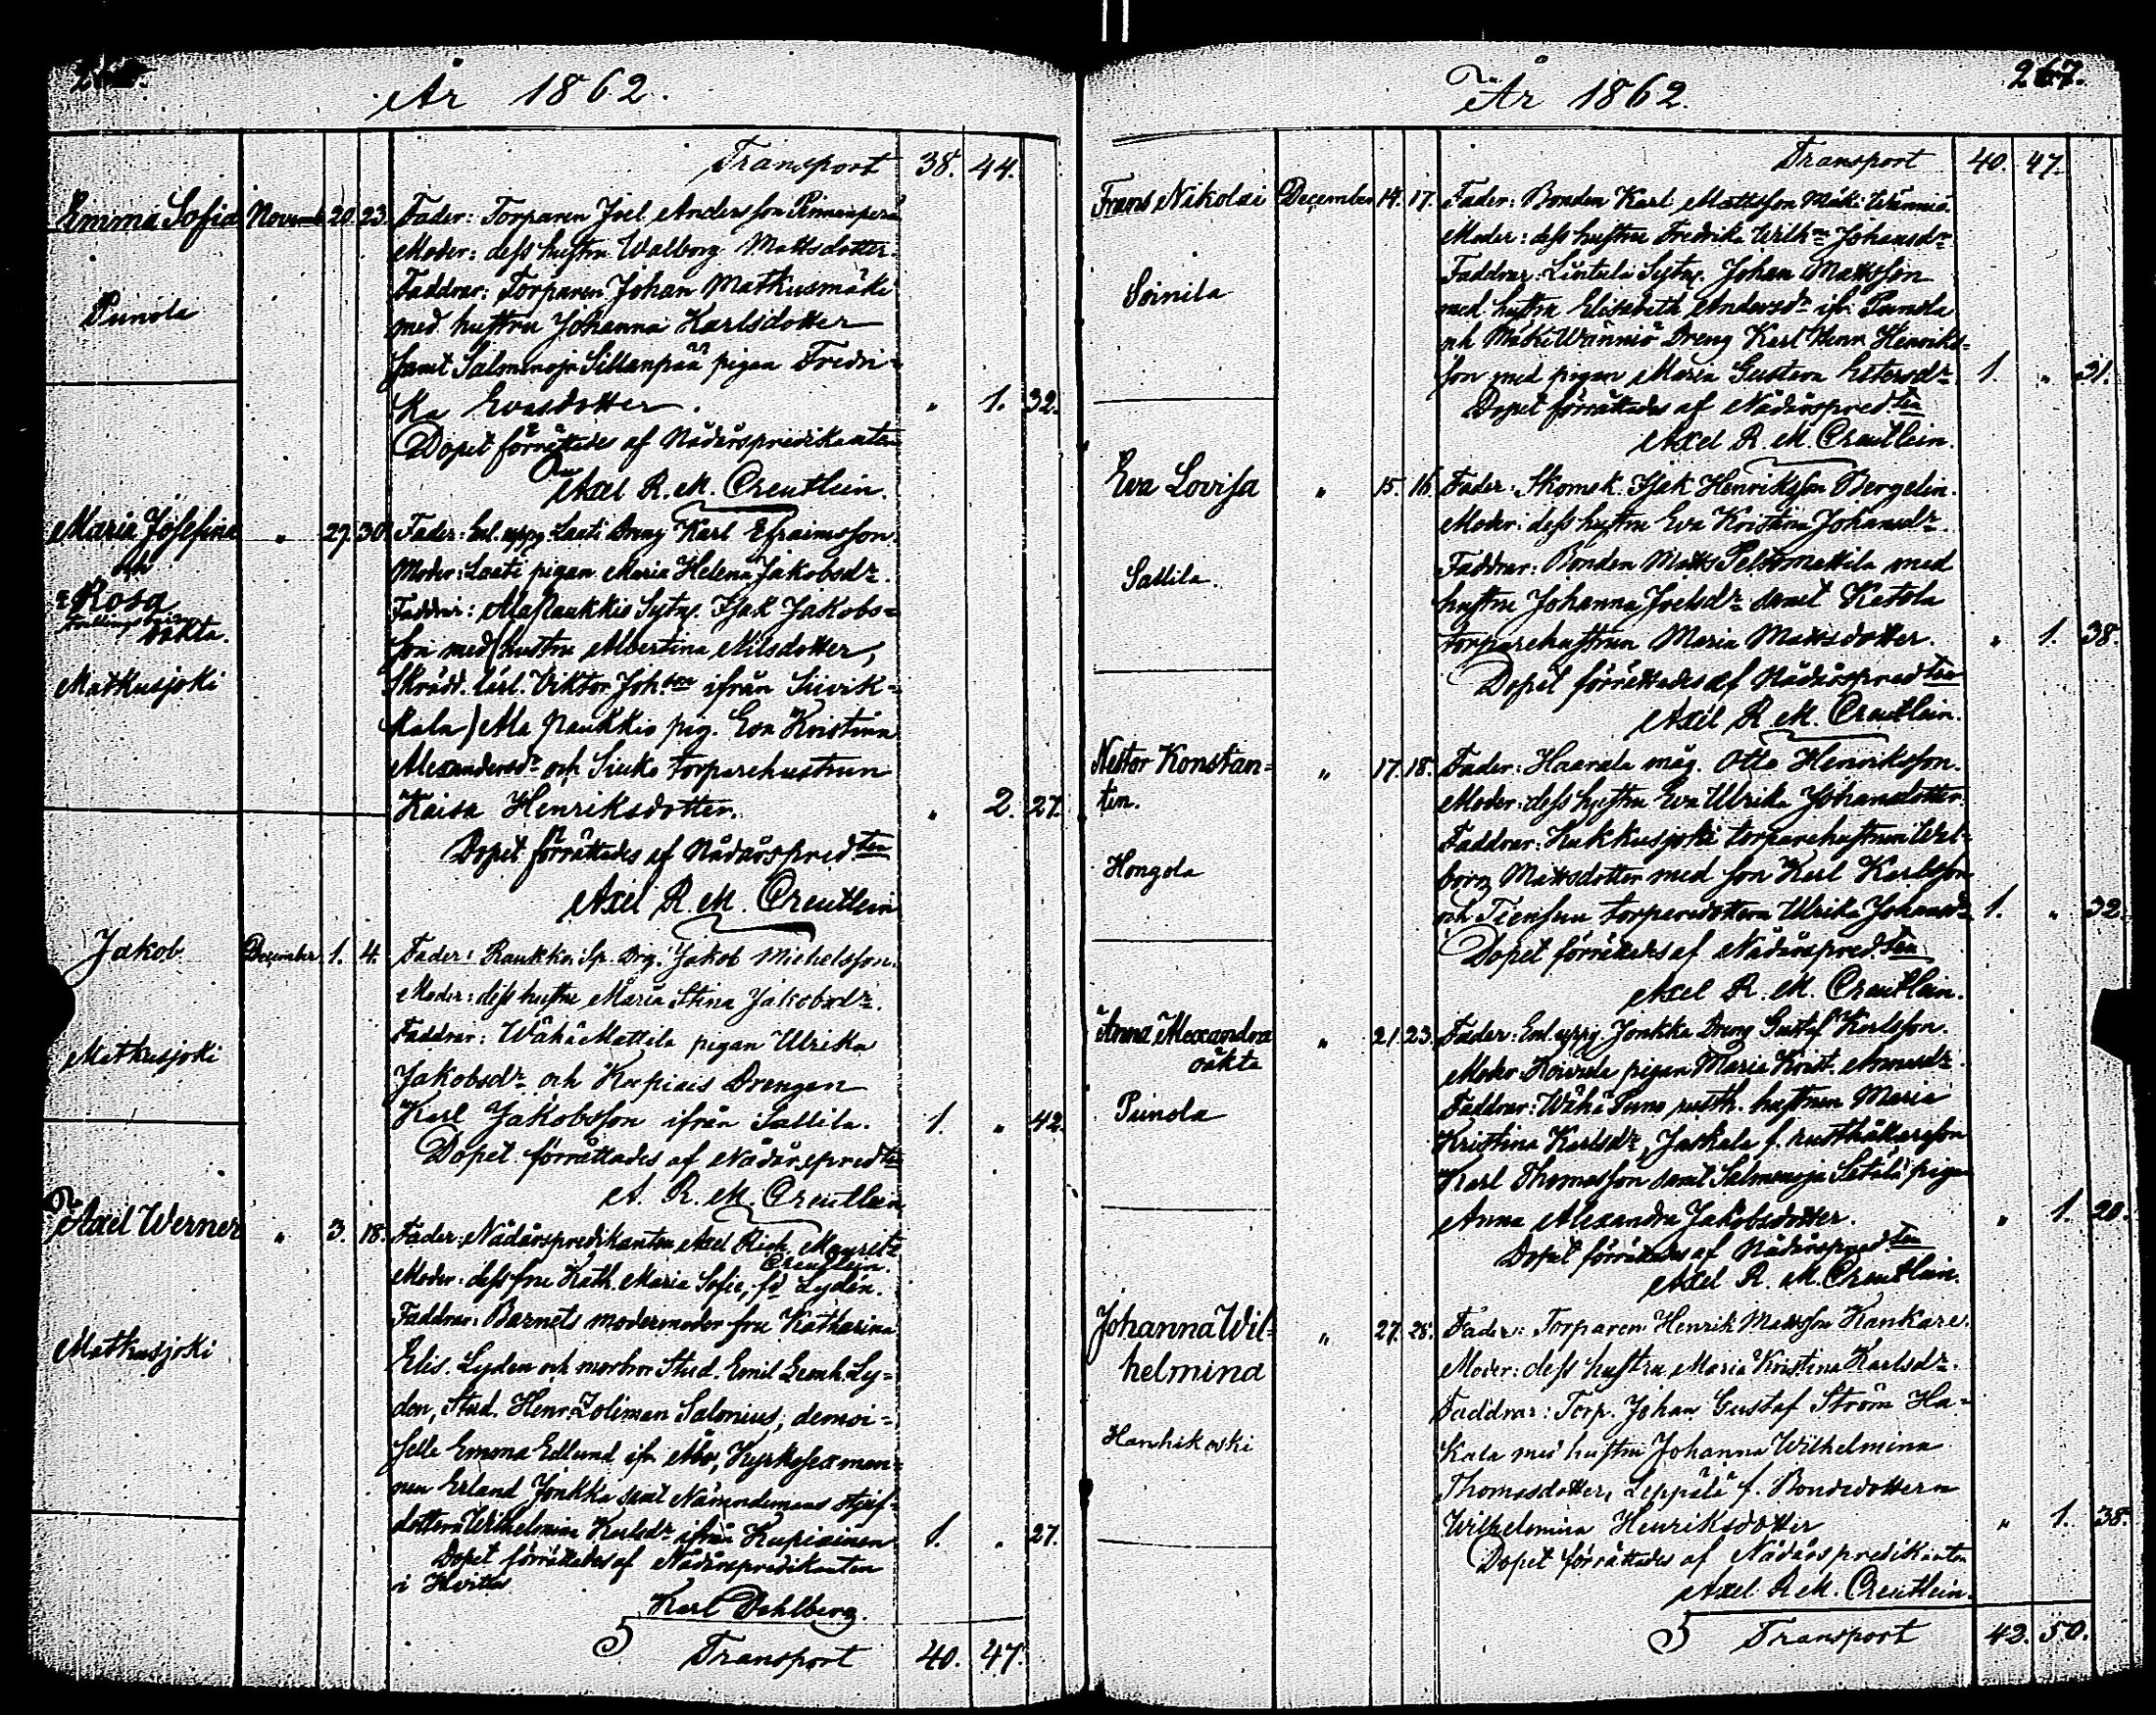 År 1862.
Transport 38. 44.
Emma Sofia Novemb. 20. 23. Fader: Torparen Joel Andersson
Moder: dess hustru Walborg Mattsdotter.
Faddrar: Torparen Johan Matkusmäki
Punola
med hustru Johanna Karlsdotter
samt Salmenoja Sillanpää pigan Fredri-
ka Evasdotter. " 1. 32.
Dopet förrättades af Nådårspredikanten
Axel R. M. Creutlein.
Maria Josefina " 27. 30. Fader: Enl. uppg. Laati Dreng Karl Efraimsson.
Moder: Laati pigan Maria Helena Jakobsdr.
Rosa
Faddrar: Ala Raukkio Sytn. Isak Jakobs-
oäkta.
son med hustru Albertina Nilsdotter,
Matkusjoki
Skrädd. lärl. Viktor Johson ifrån Suvik-
kala) Ala Raukkio pig. Eva Kristina
Alexandersdr och torparehustrun
Kaisa Henriksdotter. " 2. 27.
Dopet förrättades af Nådårspredten
Axel R. M. Creutlein
Jakob December 1. 4. Fader: Raukko Sp. Drg. Jakob Michelsson.
Moder: dess hustru Maria Stina Jakobsdr.
Faddrar: Wähä Mattila pigan Ulrika
Matkusjoki
Jakobsdr och Kupiais Drengen
Karl Jakobsson ifrån Sallila. 1. " 42.
Dopet förrättades af Nådårspredten
A. R. M. Creutlein
Axel Werner " 3. 18. Fader: Nådårspredikanten Axel Rich. Mauritz
Creutlein.
Moder: dess fru Kath. Maria Sofie, fd Lydén.
Faddrar: Barnets modermoder fru Katharina
Matkusjoki
Elis. Lyden och morbror Stud. Emil Leonh. Ly-
den, Stud. Henr. Zoliman Salonius, demoi-
selle Emma Edlund ifr. Åbo, Kyrkosexman-
nen Erland Jonkka samt Nämndemans styf-
dottern Wilhelmina Karlsdr ifrån Kupiainen 1. " 27.
Dopet förrättades af Nådårspredikanten
i Hvittis
Karl Dahlberg.
5 Transport 40. 47.
År 1862. 267.
Transport 40. 47.
Frans Nikolai December 14. 17. Fader: Bonden Karl Mattsson Mäki Wänniö.
Moder: dess hustru Fredrika Wilhna Johansdr
Faddrar: Lintula Sytn. Johan Mattsson
Soinila
med hustru Elisabeth Andersdr ifr. Punola
och Mäki Wänniö Dreng Karl Henr. Henriks-
son med pigan Maria Gustava Estersdr 1. " 31.
Dopet förrättades af Nådårspredten
Axel R. M. Creutlein.
Eva Lovisa " 15. 16. Fader: Skomak. Isak Henriksson Bergelin.
Moder: dess hustru Eva Kristina Johansdr.
Faddrar: Bonden Matts Peltomattila med
Sallila.
hustru Johanna Joelsdr samt Ketola
torparehustrun Maria Mattsdotter. " 1. 38.
Dopet förrättades af Nådårspredten
Axel R. M. Creutlein.
Nestor Konstan- " 17. 18. Fader: Haarala måg. Otto Henriksson.
tin.
Moder: dess hustru Eva Ulrika Johansdotter.
Faddrar: Kukkusjoki torparehustrun Wal-
Hongola
borg Mattsdotter med son Karl Karlsson
och torparedottern Ulrika Johansdr 1. " 32.
Dopet förrättades af Nådårspredten
Axel R. M. Creutlein.
Anna Alexandra " 21. 23. Fader: Enl. uppg. Jonkka Dreng Gustaf Karlsson.
oäkta
Moder: Koivula pigan Maria Krist.
Punola
Faddrar: Wähä Puno rusth. hustrun Maria
Kristina Karlsdr, Jaskala f. rusthållaresson
Karl Thomasson samt Salmenoja Setälä pigan
Anna Alexandra Jakobsdotter. " 1. 20.
Dopet förrättades af Nådårspredten
Axel R. M. Creutlein.
Johanna Wil- " 27. 28. Fader: Torparen Henrik Mattsson Kankare.
helmina
Moder: dess hustru Maria Kristina Karlsdr.
Faddrar: Torp. Johan Gustaf Ström Ha-
Hanhikoski
kala med hustru Johanna Wilhelmina
Thomasdotter, Leppälä f. Bondedottern
Wilhelmina Henriksdotter " 1. 38.
Dopet förrättades af Nådårspredikanten
Axel R. M. Creutlein.
5 Transport 42. 50.